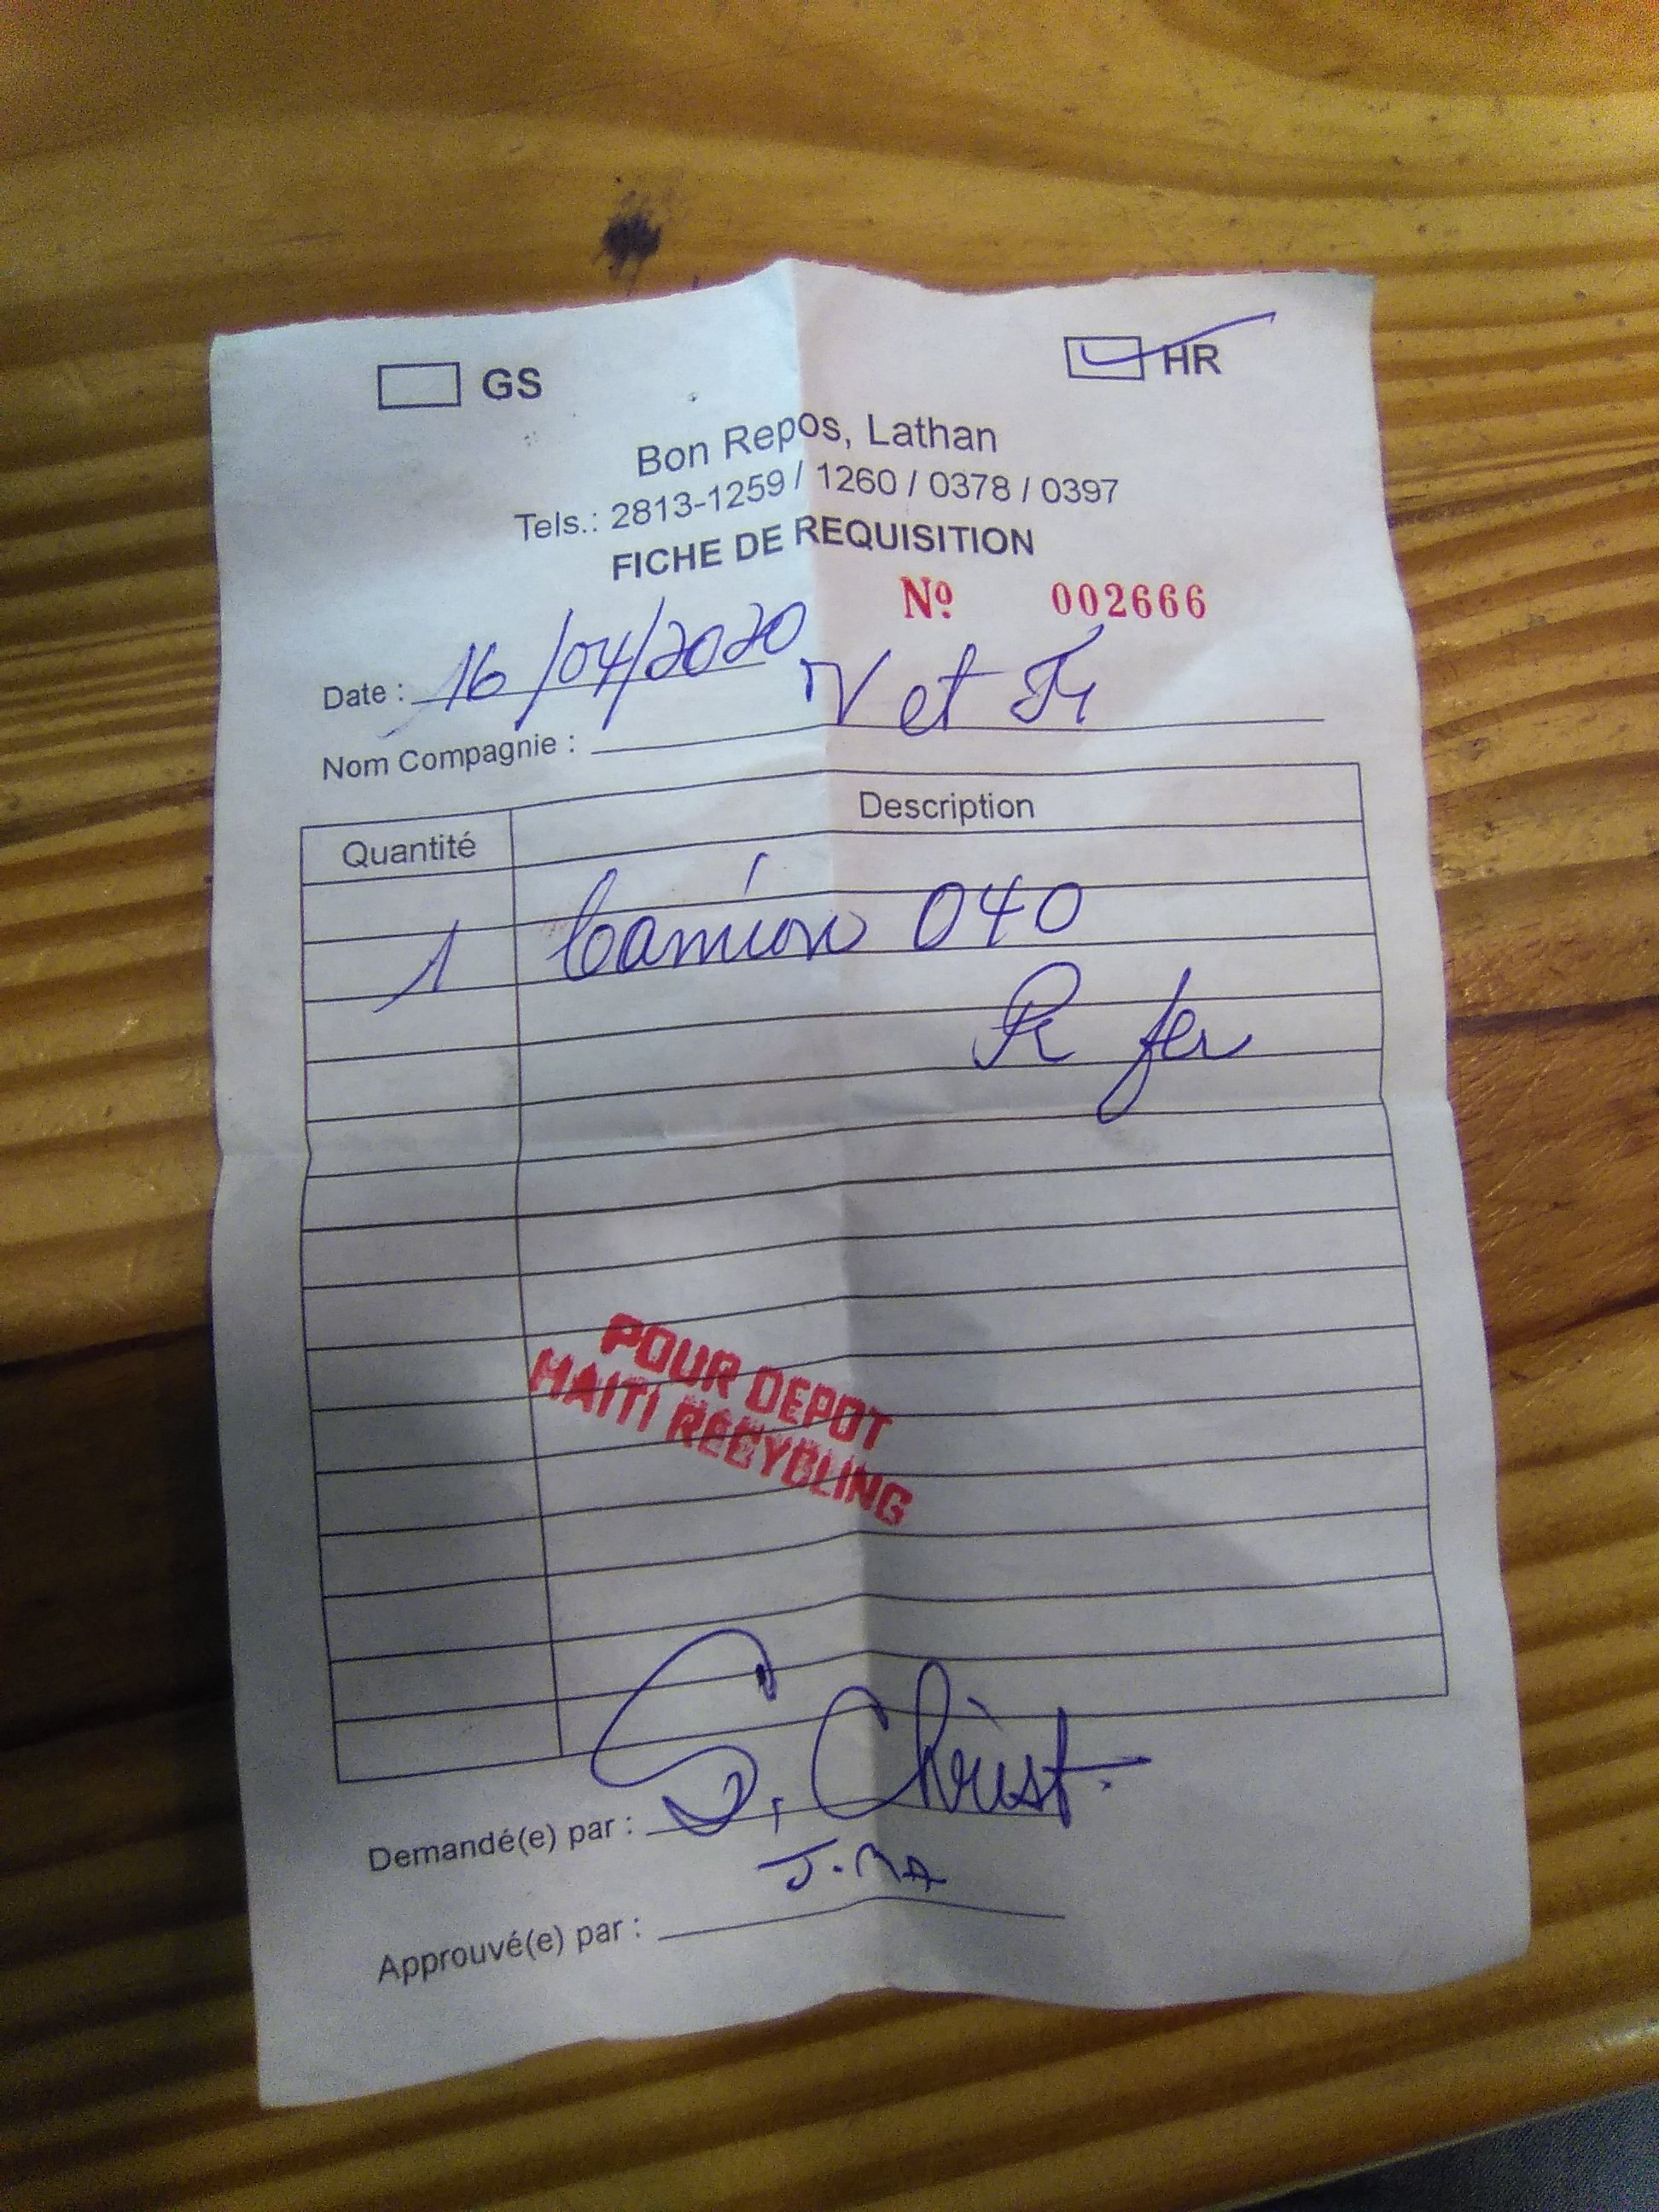 GS
HR
Bon Repos, Lathan
Tels.: 2813-1259 / 1260 / 0378 / 0397
FICHE DE REQUISITION
Nº 002666
Date : 16/04/2020
Nom Compagnie : V et Fr
Quantité Description
1 Camion 040
R fer
POUR DEPOT
HAITI RECYCLING
Demandé(e) par : S. Christ.
Approuvé(e) par :